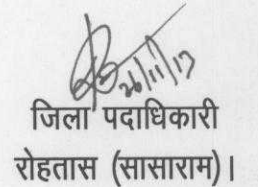 26/11/13
जिला पदाधिकारी
रोहतास (सासाराम)।